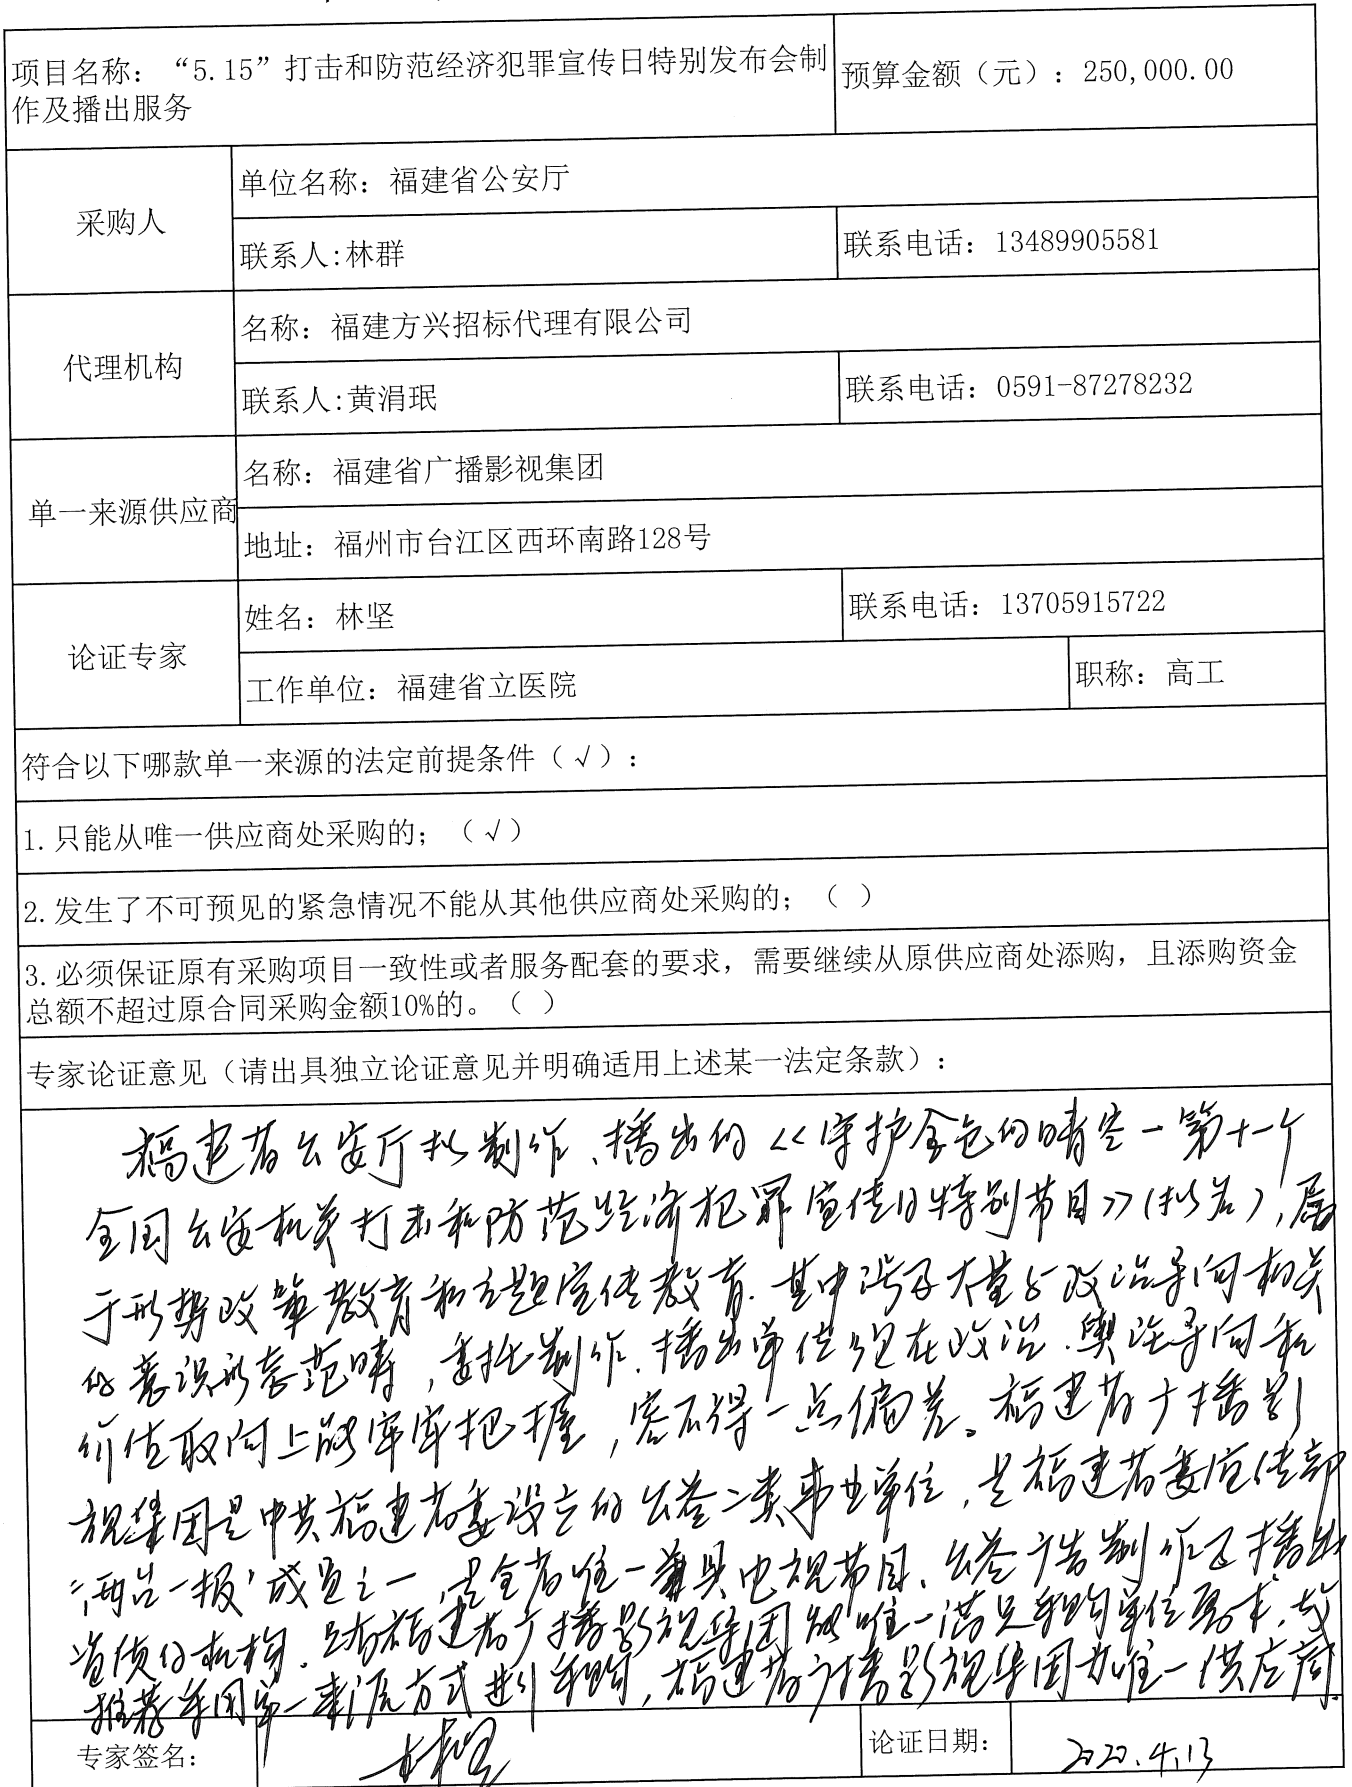 项目名称：“5.15”打击和防范经济犯罪宣传日特别发布会制
作及播出服务
预算金额（元）：250,000.00
采购人
单位名称：福建省公安厅
联系人:林群
联系电话：13489905581
代理机构
名称：福建方兴招标代理有限公司
联系人:黄涓珉
联系电话：0591-87278232
单一来源供应商
名称：福建省广播影视集团
地址：福州市台江区西环南路128号
论证专家
姓名：林坚
联系电话：13705915722
工作单位：福建省立医院
职称：高工
符合以下哪款单一来源的法定前提条件（√）：
1.只能从唯一供应商处采购的；（√）
2.发生了不可预见的紧急情况不能从其他供应商处采购的；（ ）
3.必须保证原有采购项目一致性或者服务配套的要求，需要继续从原供应商处添购，且添购资金
总额不超过原合同采购金额10%的。（ ）
专家论证意见（请出具独立论证意见并明确适用上述某一法定条款）：
福建省公安厅拟制作、播出的《守护金色的晴空—第十一个
全国公安机关打击和防范经济犯罪宣传日特别节目》(拟名)，属
于形势政策教育和主题宣传教育.其中涉及大量与政治导向相关
的意识形态范畴，委托制作、播出单位须在政治、舆论导向和
价值取向上能牢牢把握，容不得一点偏差。福建省广播影
视集团是中共福建省委设立的公益二类事业单位，是福建省委宣传部
“两台一报”成员之一，是全省唯一兼具电视节目、公益广告制作及播出
资质的机构.只有福建省广播影视集团能唯一满足采购单位需求.故
推荐采用单一来源方式进行采购，福建省广播影视集团为唯一供应商.
专家签名：
林坚
论证日期：
2022.4.13